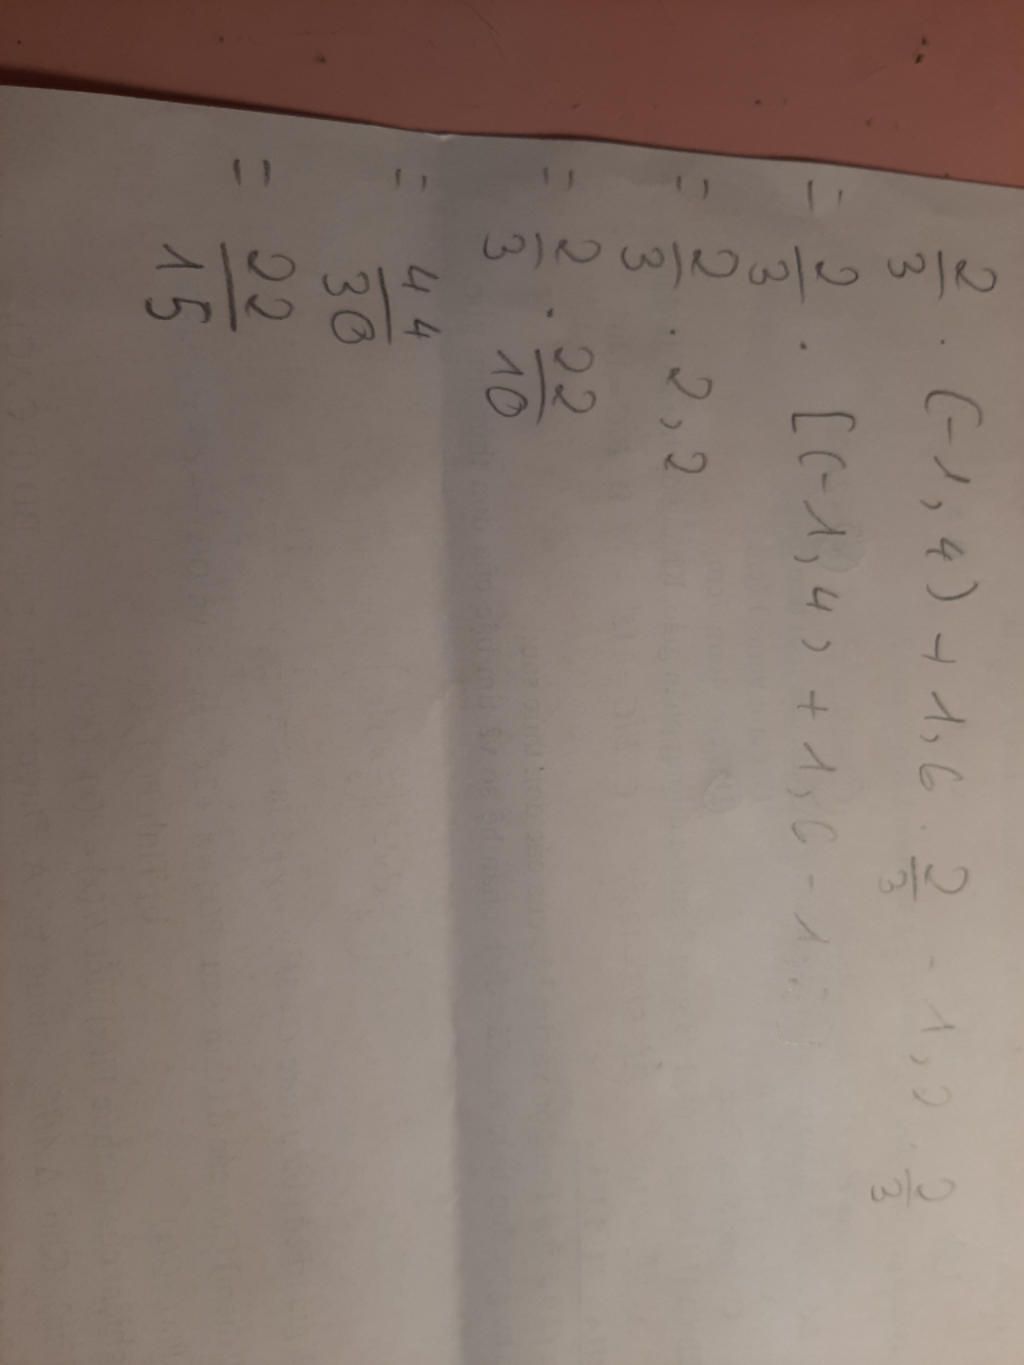 2/3 . (-1,4) + 1,6 . 2/3 - 1,2 . 2/3
= 2/3 . [(-1,4) + 1,6 - 1,
= 2/3 . 2,2
= 2/3 . 22/10
= 44/30
= 22/15